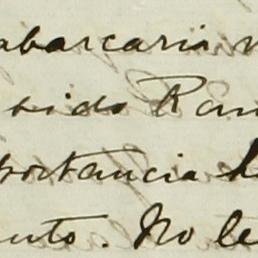 abarcaria
sido Ran
portancia h
nto. No le